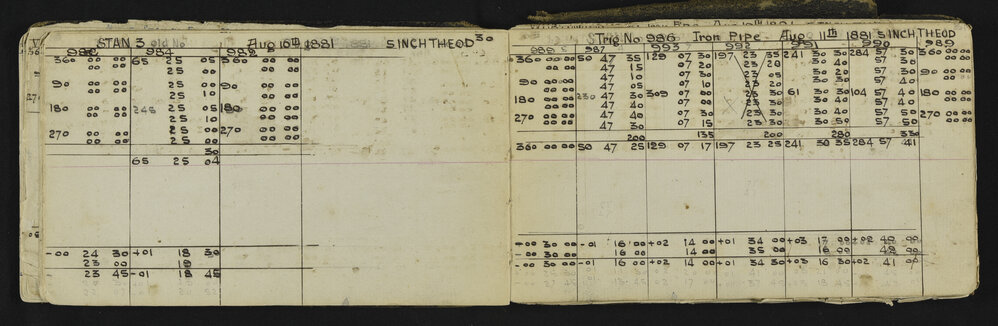 STAN 3 old No Aug 10th 1881 5 INCH THEOD
984 982
360 00 00 65 25 05 360 00 00
00 00 25 00 00 00
90 00 00 25 00 90 00 00
00 00 25 10 00 00
180 00 00 245 25 05 180 00 00
00 00 25 10 00 00
270 00 00 25 00 270 00 00
00 00 25 00 00 00
30
65 25 04
-00 24 30 +01 18 30
23 00 19
- 23 45 -01 18 45
Trig No 986 Iron Pipe Aug 11th 1881 5 INCH THEOD
987 993 992 991 990 989
360 00 00 50 47 35 129 07 30 197 23 35 241 30 40 284 57 30 360 00 00
00 00 47 15 07 20 23 20 30 40 57 30 00 00
90 00 00 47 10 07 20 23 05 30 20 57 30 90 00 00
00 00 47 05 07 10 23 20 30 40 57 40 00 00
180 00 00 230 47 30 309 07 00 23 30 61 30 30 104 57 40 180 00 00
00 00 47 40 07 00 23 30 30 40 57 40 00 00
270 00 00 47 40 07 30 23 30 30 30 57 50 270 00 00
00 00 47 30 07 15 23 30 30 50 57 50 00 00
200 135 200 280 330
360 00 00 50 47 25 129 07 17 197 23 25 241 30 35 284 57 41
-00 30 00 -01 16 00 +02 14 00 +01 34 00 +03 17 00 +02 42 00
30 00 16 00 14 00 35 00 16 00
- 30 00 -01 16 00 +02 14 00 +01 34 30 +03 16 30 +02 41 00